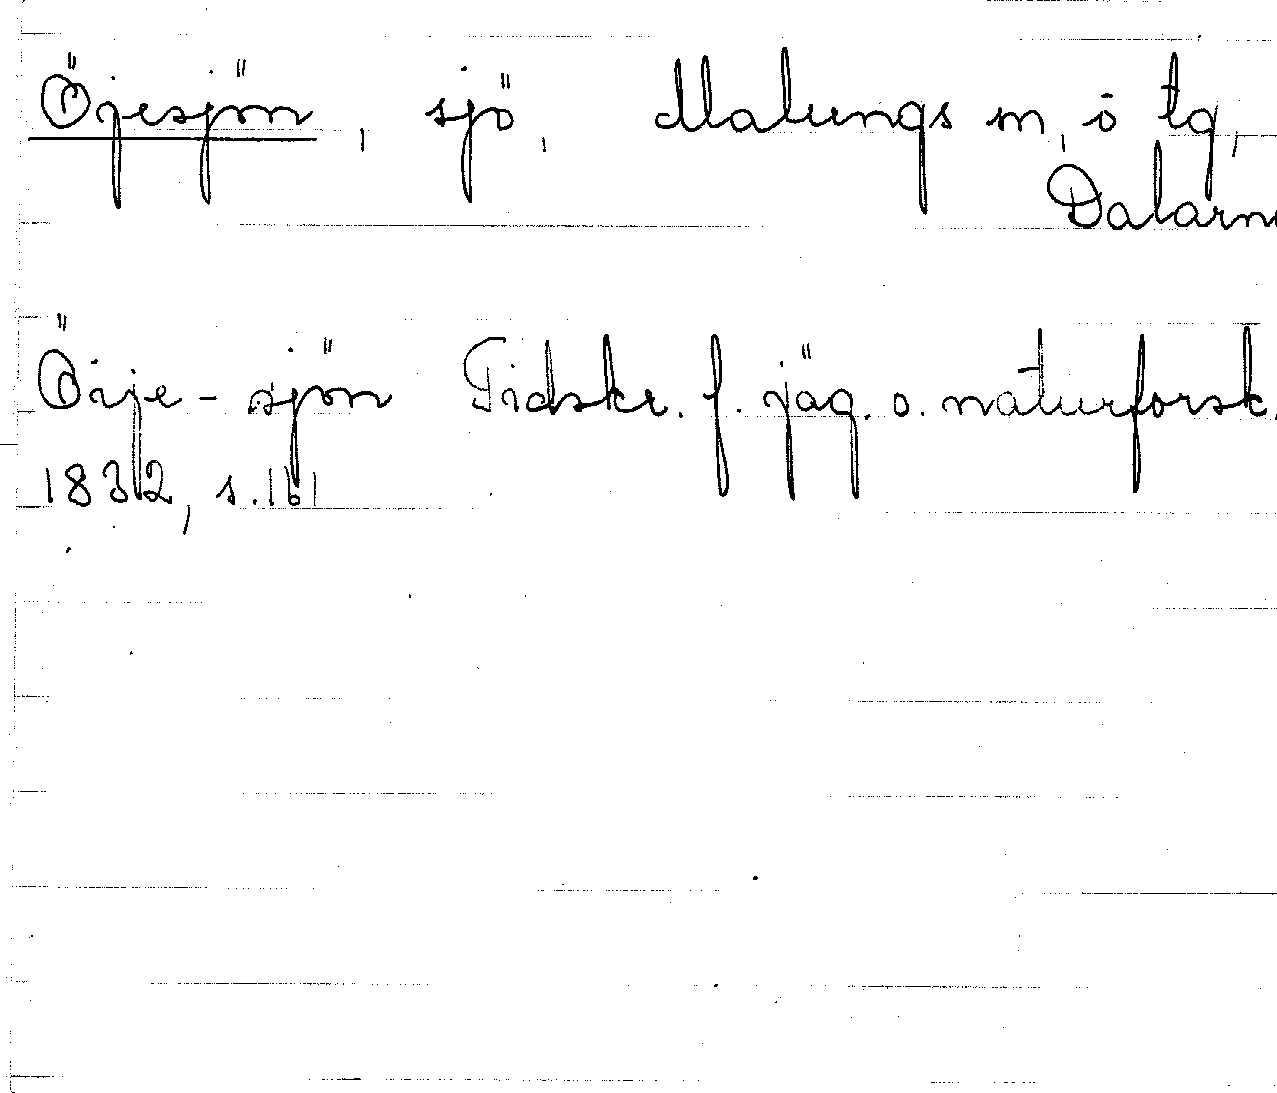 Öjesjön, sjö, Malungs sn, ö tg,
Dalarna
Öije-sjön Tidskr. f. jäg. o. naturforsk.
1832, s. 161